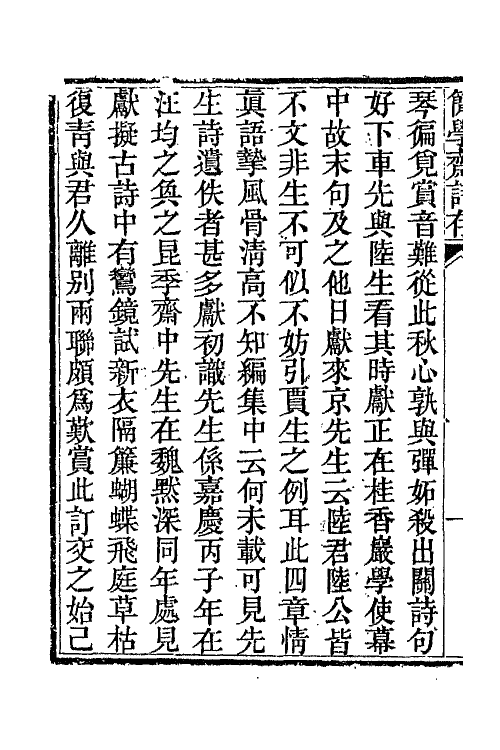 簡學齋詩存
琴徧覓賞音難從此秋心孰與彈妬殺出關詩句
好下車先與陸生看其時獻正在桂香巖學使幕
中故末句及之他日獻來京先生云陸君陸公皆
不文非生不可似不妨引賈生之例耳此四章情
眞語摯風骨清高不知編集中云何未載可見先
生詩遺佚者甚多獻初識先生係嘉慶丙子年在
汪均之奐之昆季齋中先生在魏默深同年處見
獻擬古詩中有鸞鏡試新衣隔簾蝴蝶飛庭草枯
復靑與君久離別兩聯頗爲歎賞此訂交之始己